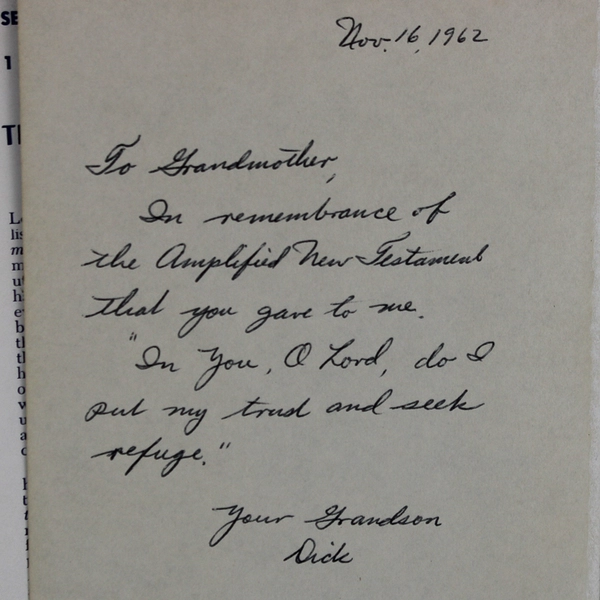 Nov. 16, 1962
To Grandmother,
In remembrance of
the Amplified New Testament
that you gave to me.
"In You, O Lord, do I
put my trust and seek
refuge."
Your Grandson
Dick
SE
1